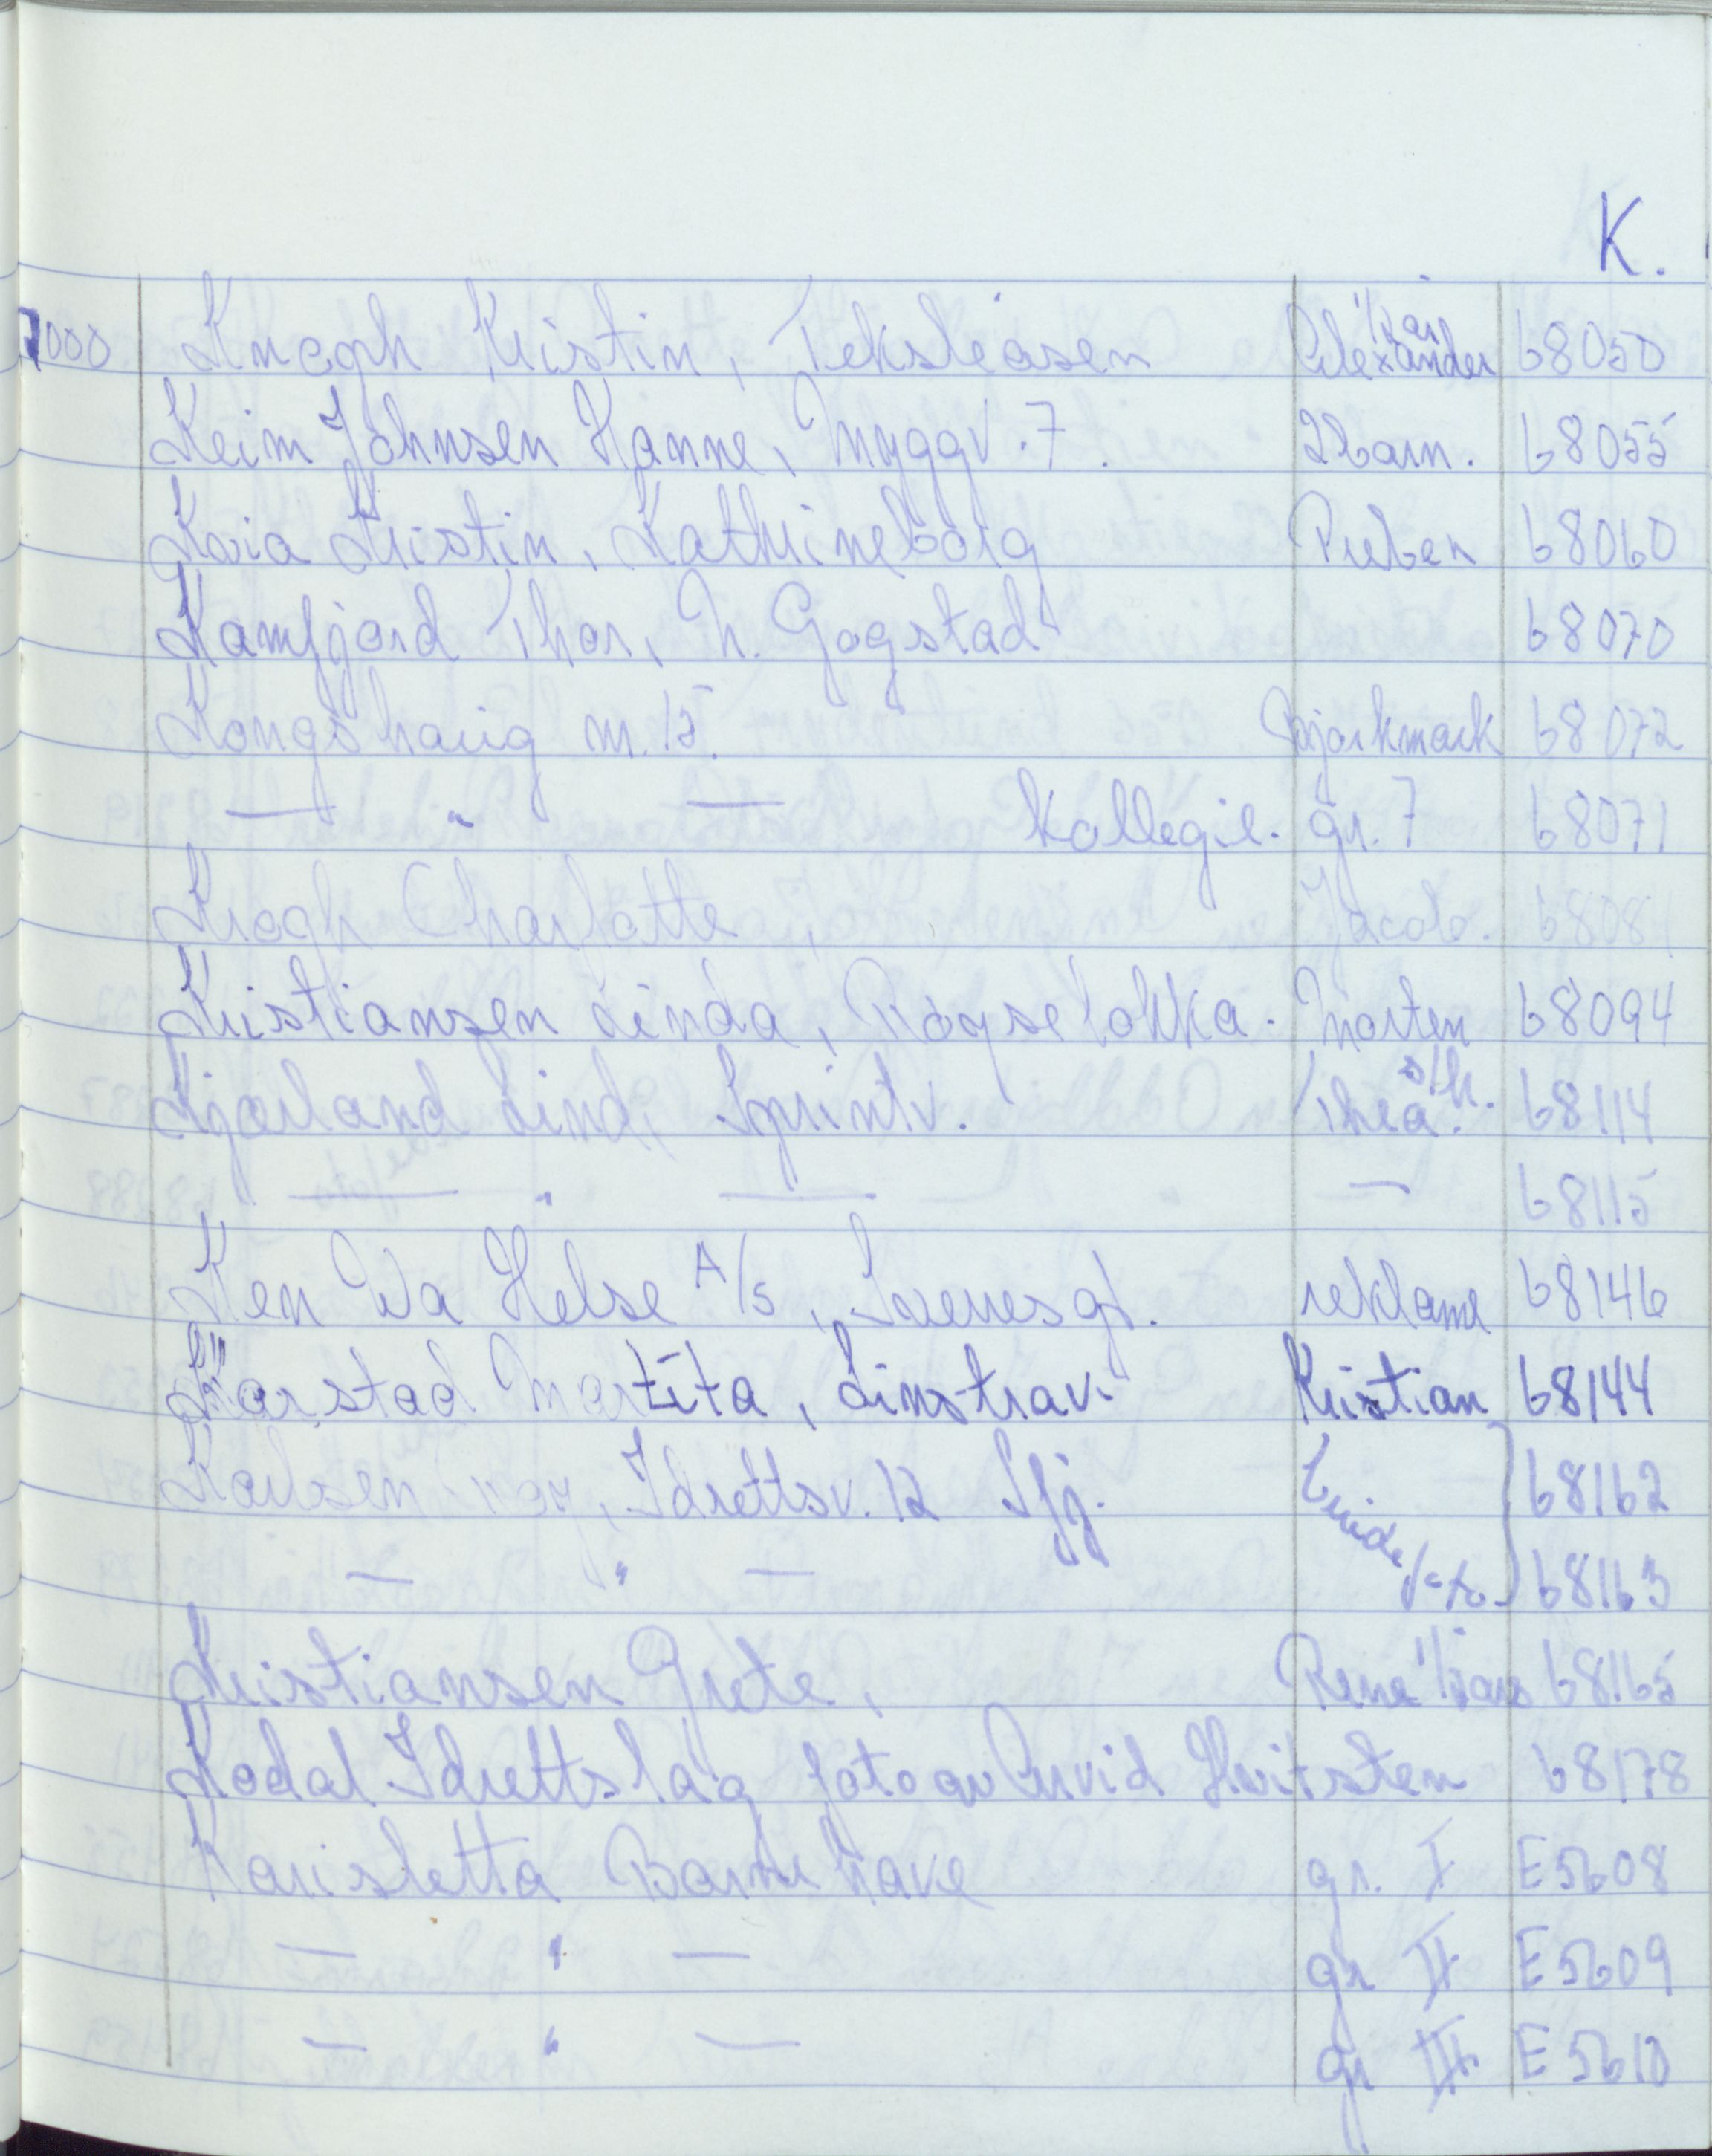 K.
7000 Knagh Kristin, Teksleåsen Alexander 1/2 år 68050
Keim Johnsen Hanne, Myggv. 7. 2 barn. 68055
Kvia Kristin, Kathrineborg Preben 68060
Kamfjord Thor, N. Gogstad 68070
Kongshaug m. 15. Bjørkmark 68072
— " — Kollegie. gr. 7 68071
Krogh Charlotte, Jacob. 68081
Kristiansen Linda, Rogseløkka. Morten 68094
Kjørland Lind, Sprintv. Thea. s/h. 68114
— " — — 68115
Ken Wa Helse A/S, Sverresgt. reklame 68146
Karstad Martita, Linstrav. Kristian 68144
Karlsen, Idrettsv. 12 Sfj. brude 68162
— " — foto. 68163
Kristiansen Grete, René 1/2 års 68165
Kodal Idrettslag foto av Arvid Hvitsten 68178
Karisletta Barnehave gr. I E5608
— " — gr II E5609
— " — gr III E5610